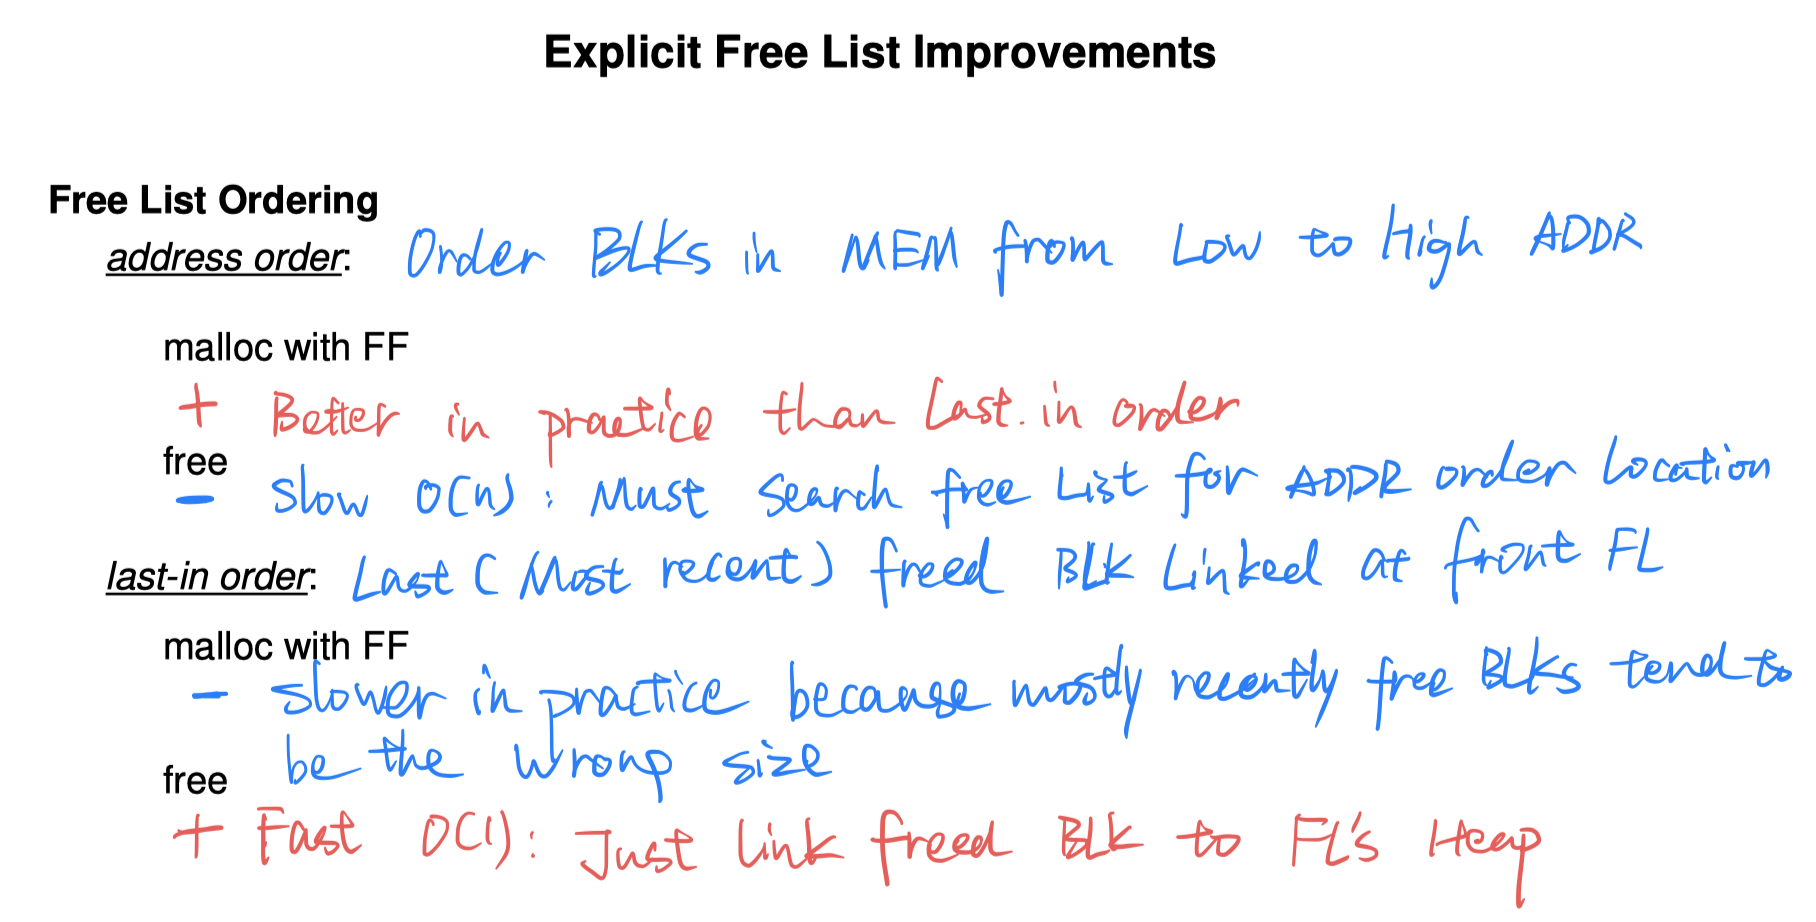 Explicit Free List Improvements
Free List Ordering
address order: Order BLKs in MEM from Low to High ADDR
malloc with FF
+ Better in practice than Last.in order
free
- Slow O(n) : Must Search free List for ADDR order Location
last-in order: Last ( Most recent) freed BLK Linked at front FL
malloc with FF
- slower in practice because mostly recently free BLKs tend to
be the wrong size
free
+ Fast O(1): Just link freed BLK to FL's Heap